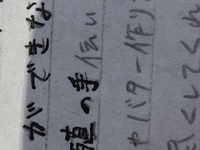 ができな
の手伝い
やバター作り
くしてくれ